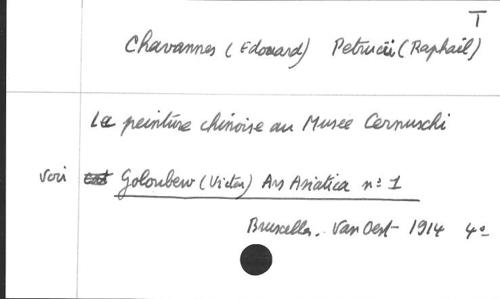 T
Chavannes (Edouard) Petrucci (Raphaël)
La peinture chinoise au Musee Cernuschi
voir Goloubew (Victor) Ars Asiatica n° 1
Bruxelles. Van Oest 1914 4°